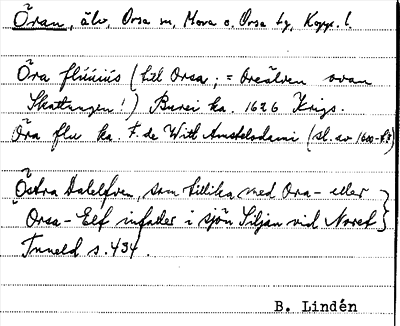 Öran, älv, Orsa sn, Mora o. Orsa tg, Kopp. l.
Öra flúúiús (till Orsa; = Oreälven ovan
Skattungen!) Burei ka. 1626 Krigs.
Öra flu ka. F. de Witt Amstelodami (sl. av 1600-t.)
Östra Dalelfven, som tillika med Ora- eller
Orsa-Elf infaller i sjön Siljan vid Noret
Tuneld s. 434.
B. Lindén